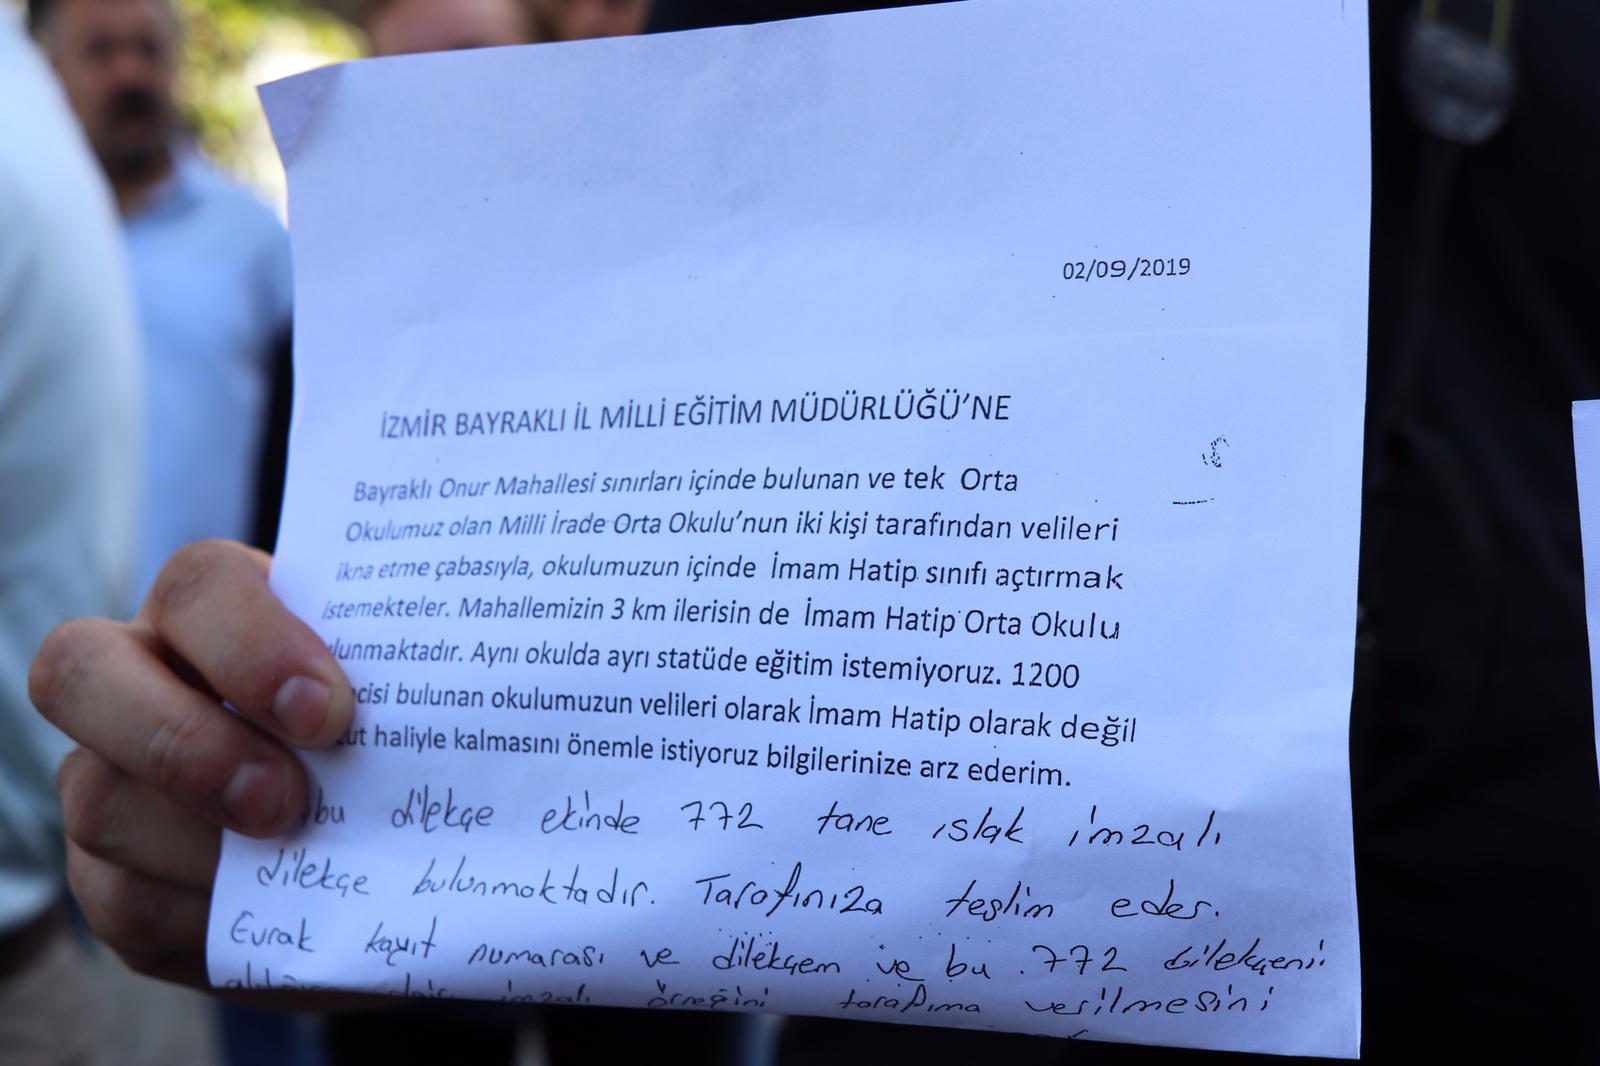 02/09/2019
İZMİR BAYRAKLI İL MİLLİ EĞİTİM MÜDÜRLÜĞÜ'NE
Bayraklı Onur Mahallesi sınırları içinde bulunan ve tek Orta
Okulumuz olan Milli İrade Orta Okulu'nun iki kişi tarafından velileri
ikna etme çabasıyla, okulumuzun içinde İmam Hatip sınıfı açtırmak
istemekteler. Mahallemizin 3 km ilerisin de İmam Hatip Orta Okulu
lunmaktadır. Aynı okulda ayrı statüde eğitim istemiyoruz. 1200
cisi bulunan okulumuzun velileri olarak İmam Hatip olarak değil
ut haliyle kalmasını önemle istiyoruz bilgilerinize arz ederim.
şbu dilekçe ekinde 772 tane ıslak imzalı
dilekçe bulunmaktadır. Tarafınıza teslim eder.
Evrak kayıt numarası ve dilekçem ve bu 772 dilekçenin
imzalı örneğini tarafıma verilmesini